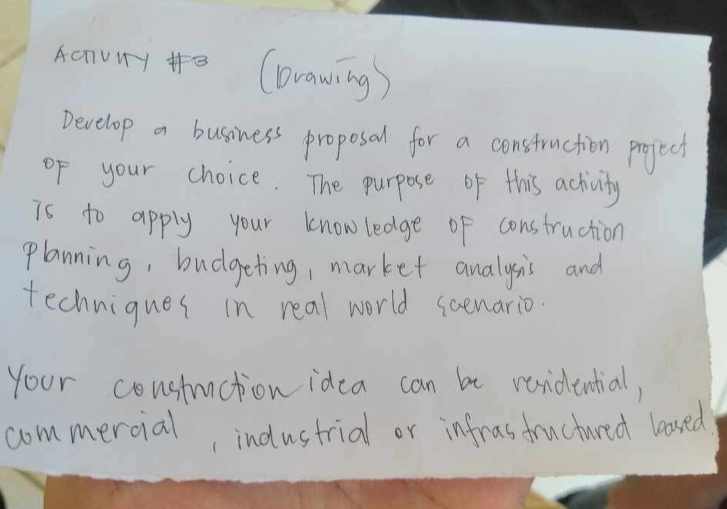 Activity #3 (Drawing)
Develop a business proposal for a construction project
of your choice. The purpose of this activity
is to apply your knowledge of construction
planning, budgeting, market analysis and
techniques in real world scenario.
Your construction idea can be residential,
commercial, industrial or infrastructured based.